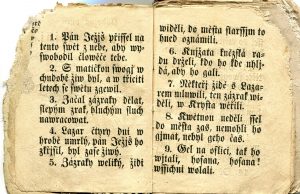 1. Pán Ježjš přissel na
tento swět z nebe, aby wy-
swobodil člowěče tebe.
2. S matičkau swogj w
chudobě žiw byl, a w třicíti
letech se swětu zgewil.
3. Začal zázraky dělat,
slepým zrak, hluchým sluch
nawracowat.
4. Lazar čtyry dni w
hrobě umrlý, pán Ježjš ho
křjsyl, byl zase žiwý.
5. Zázraky weliký, židi
widěli, do města starssjm to
hned oznámili.
6. Knjžata kněžská ra-
du drželi, kdo ho kde uhljj-
dá, aby ho gali.
7. Někteřj židé s Laza-
rem mluwili, ten zázrak wi-
děli, w Krysta wěřili.
8. Kwětnou neděli ssel
do města zas, nemohli ho
gjmat, nebyl geho čas.
9. Gel na oslici, tak ho
wjtali, hosana, hosana!
wssichni wolali.